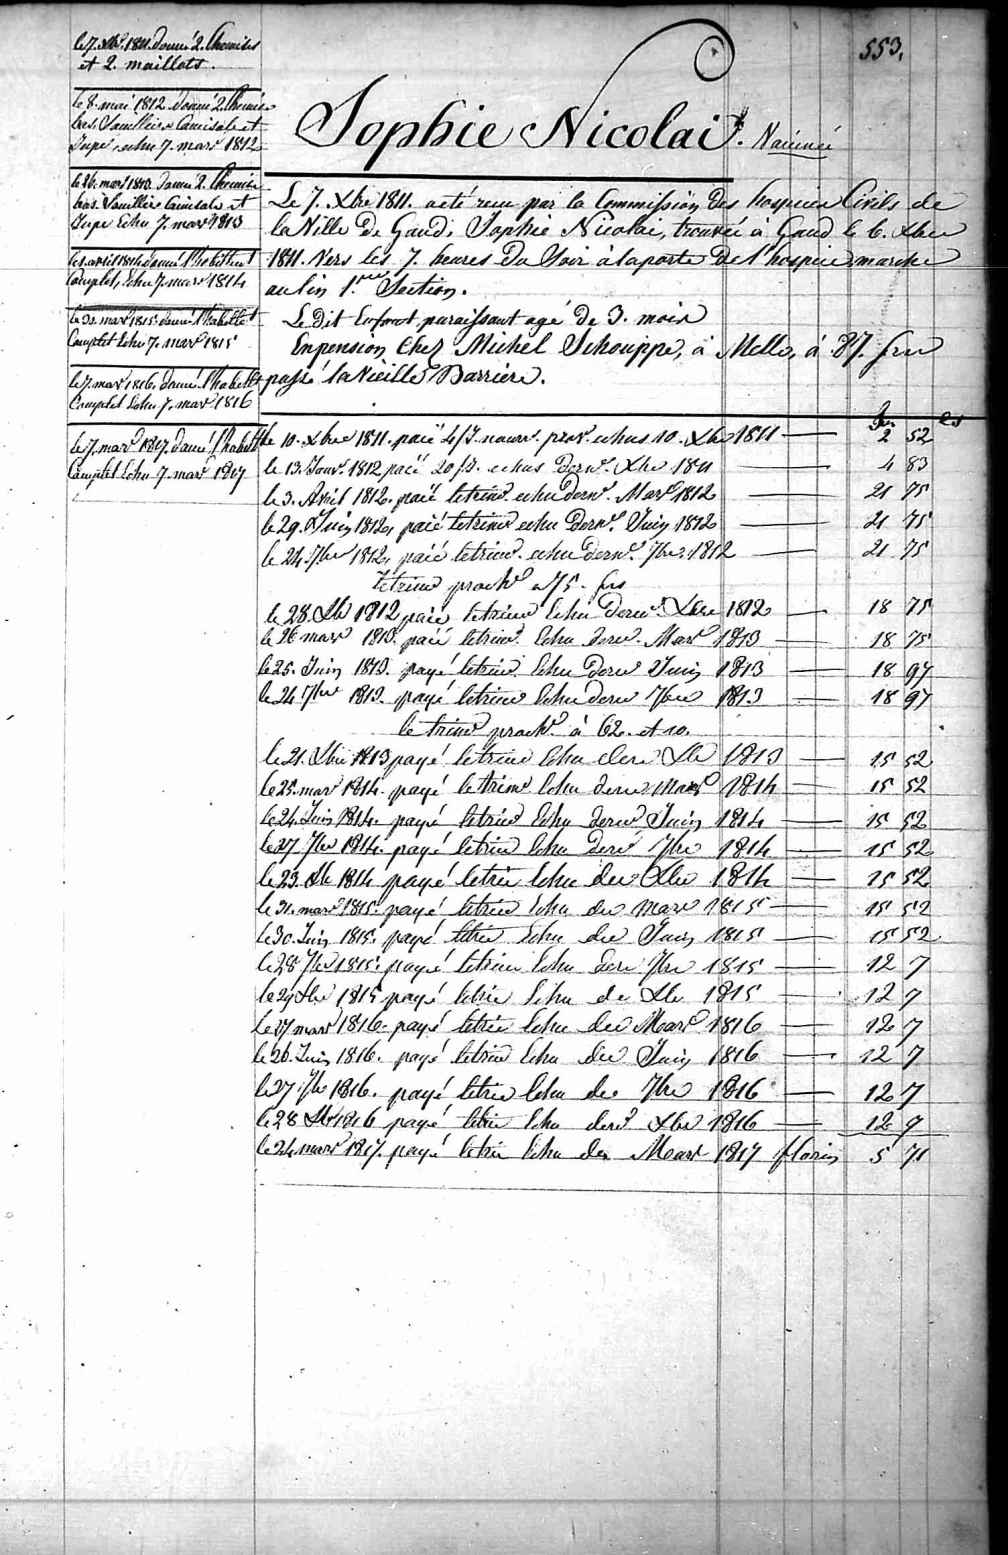 553.
le 7. Xbre 1811. donné 2. Chemises
et 2. maillots.
le 8. mai 1812 donné 2. Chemise
bas. Souillier Camisole et
Jupe echu 7. mars 1812
le 26. mars 1813. donné 2. Chemise
bas. Souillier Camisole et
Jupe Echu 7. mars 1813
les avril 1814 donné l'habillemt
Complet, Echu 7. mars 1814
le 31. mars 1815. donné l'habillt
Complet Echu 7. mars 1815
le 7. mars 1816. donné l'habillt
Complet Echu 7. mars 1816
le 7. mars 1817. donné l'habillt
Complet Echu 7. mars 1817
Sophie Nicolai.
Le 7. Xbre 1811. a eté recu par la Commission des hospices Civils de
la Ville de Gand, Sophie Nicolai, trouvée à Gand le 6. Xbre
1811. Vers les 7. heures du Soir à la porte de l'hospice, marché
au lin 1.re Section.
Le dit Enfant paraissant agé de 3. mois
En pension Chez Michel Schouppe, à Melle, à 87. frs
passé la Vieille Barrière.
frs cs
le 10. Xbre 1811. paié 4/J. nourr. prov. echus 10. Xbre 1811 — 2 52
le 13. Janv. 1812 paié 20/J. echus dernr. Xbre 1811 — 4 83
le 3. Avril 1812. paié le trimr. echu dernr. Mars 1812 — 21 75
le 29. Juin 1812, paié le trimr echu dernr. Juin 1812 — 21 75
le 24. 7bre 1812, paié le trimr. echu dernr. 7bre. 1812 — 21 75
le trimr prochr a 75. frs
le 28. Xbr 1812 paié le trimr Echu dernr. Xbre 1812 — 18 75
le 26 mars 1813. paié le trimr. Echu dernr. Mars 1813 — 18 75
le 25. Juin 1813. payé le trimr. Echu dernr Juin 1813 — 18 97
le 24 7br 1813. payé le trimr Echu dernr 7bre 1813 — 18 97
le trimr prochr. à 62. et 10.
le 21. Xbre 1813 payé le trimr Echu der Xbr 1813 — 15 52
le 25. mars 1814. payé le trimr Echu dernr Mars 1814 — 15 52
le 24. Juin 1814. payé le trimr Echu dernr Juin 1814 — 15 52
le 27 7br 1814. payé le trim Echu derr 7bre 1814 — 15 52
le 23. Xbr 1814 payé le trim Echu der Xbre 1814 — 15 52
le 31. mars 1815. payé le trim Echu der mars 1815 — 15 52
le 30. Juin 1815. payé le trim Echu der Juin 1815 — 15 52
le 28 7br 1815. payé le trim Echu der 7br 1815 — 12 7
le 29 Xbr 1815 payé le trim Echu de Xbr 1815 — 12 7
le 27 mars 1816. payé le trim Echu der Mars 1816 — 12 7
le 26. Juin 1816. payé le trim Echu der Juin 1816 — 12 7
le 27 7br 1816. payé le trim Echu de 7br 1816 — 12 7
le 28 Xbr 1816 payé le trim Echu derr Xbr 1816 — 12 7
le 24 mars 1817. payé le trim Echu der Mars 1817 florins 5 71